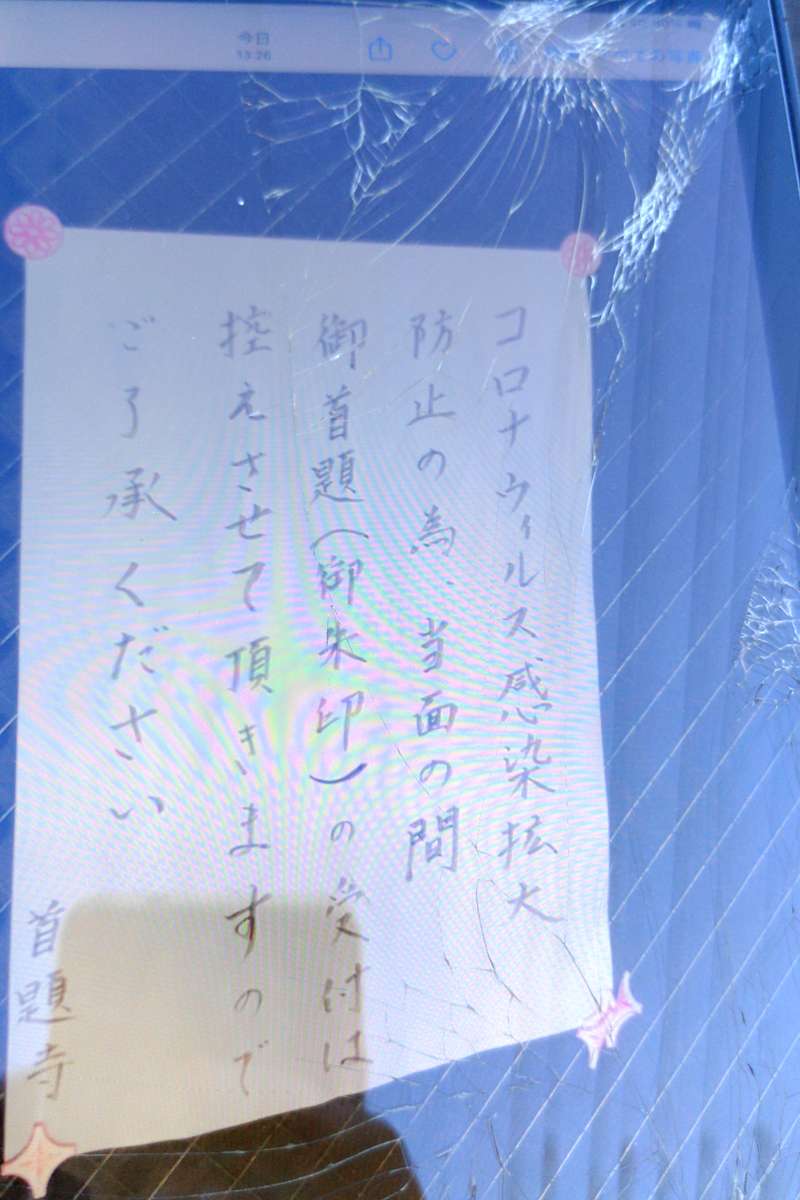 今日
13:26
コロナウィルス感染拡大
防止の為、当面の間
御首題(御朱印)の受付は
控えさせて頂きますので
ご了承ください
首題寺